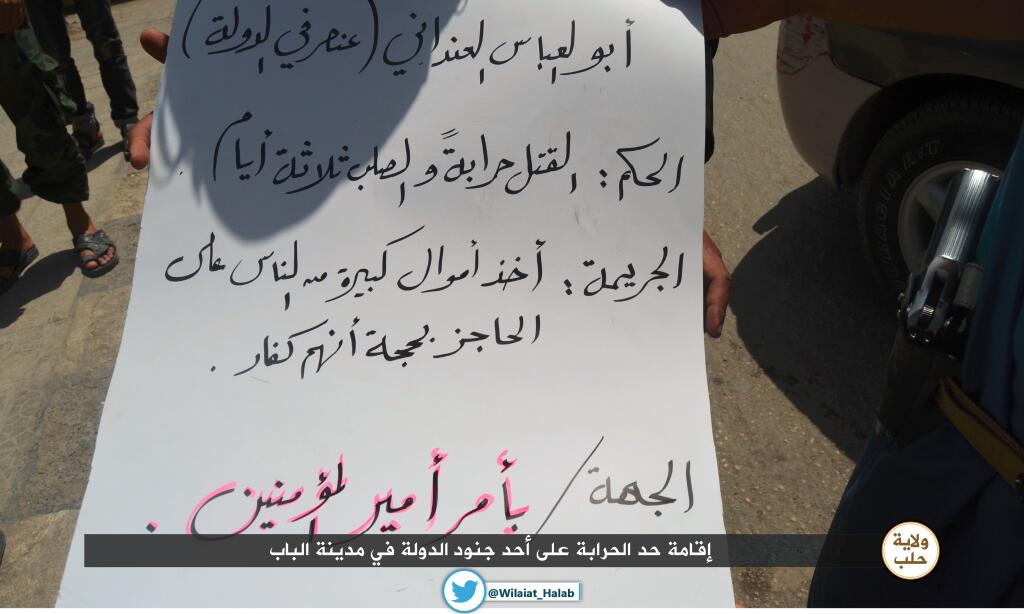 أبو العباس العنداني (عنصر في الدولة)
الحكم: القتل حرابةً والصلب ثلاثة أيام.
الجريمة: أخذ أموال كبيرة من الناس على
الحاجز بحجة أنهم كفار.
الجهة/ بأمر أمير المؤمنين.
إقامة حد الحرابة على أحد جنود الدولة في مدينة الباب
ولاية
حلب
@Wilaiat_Halab